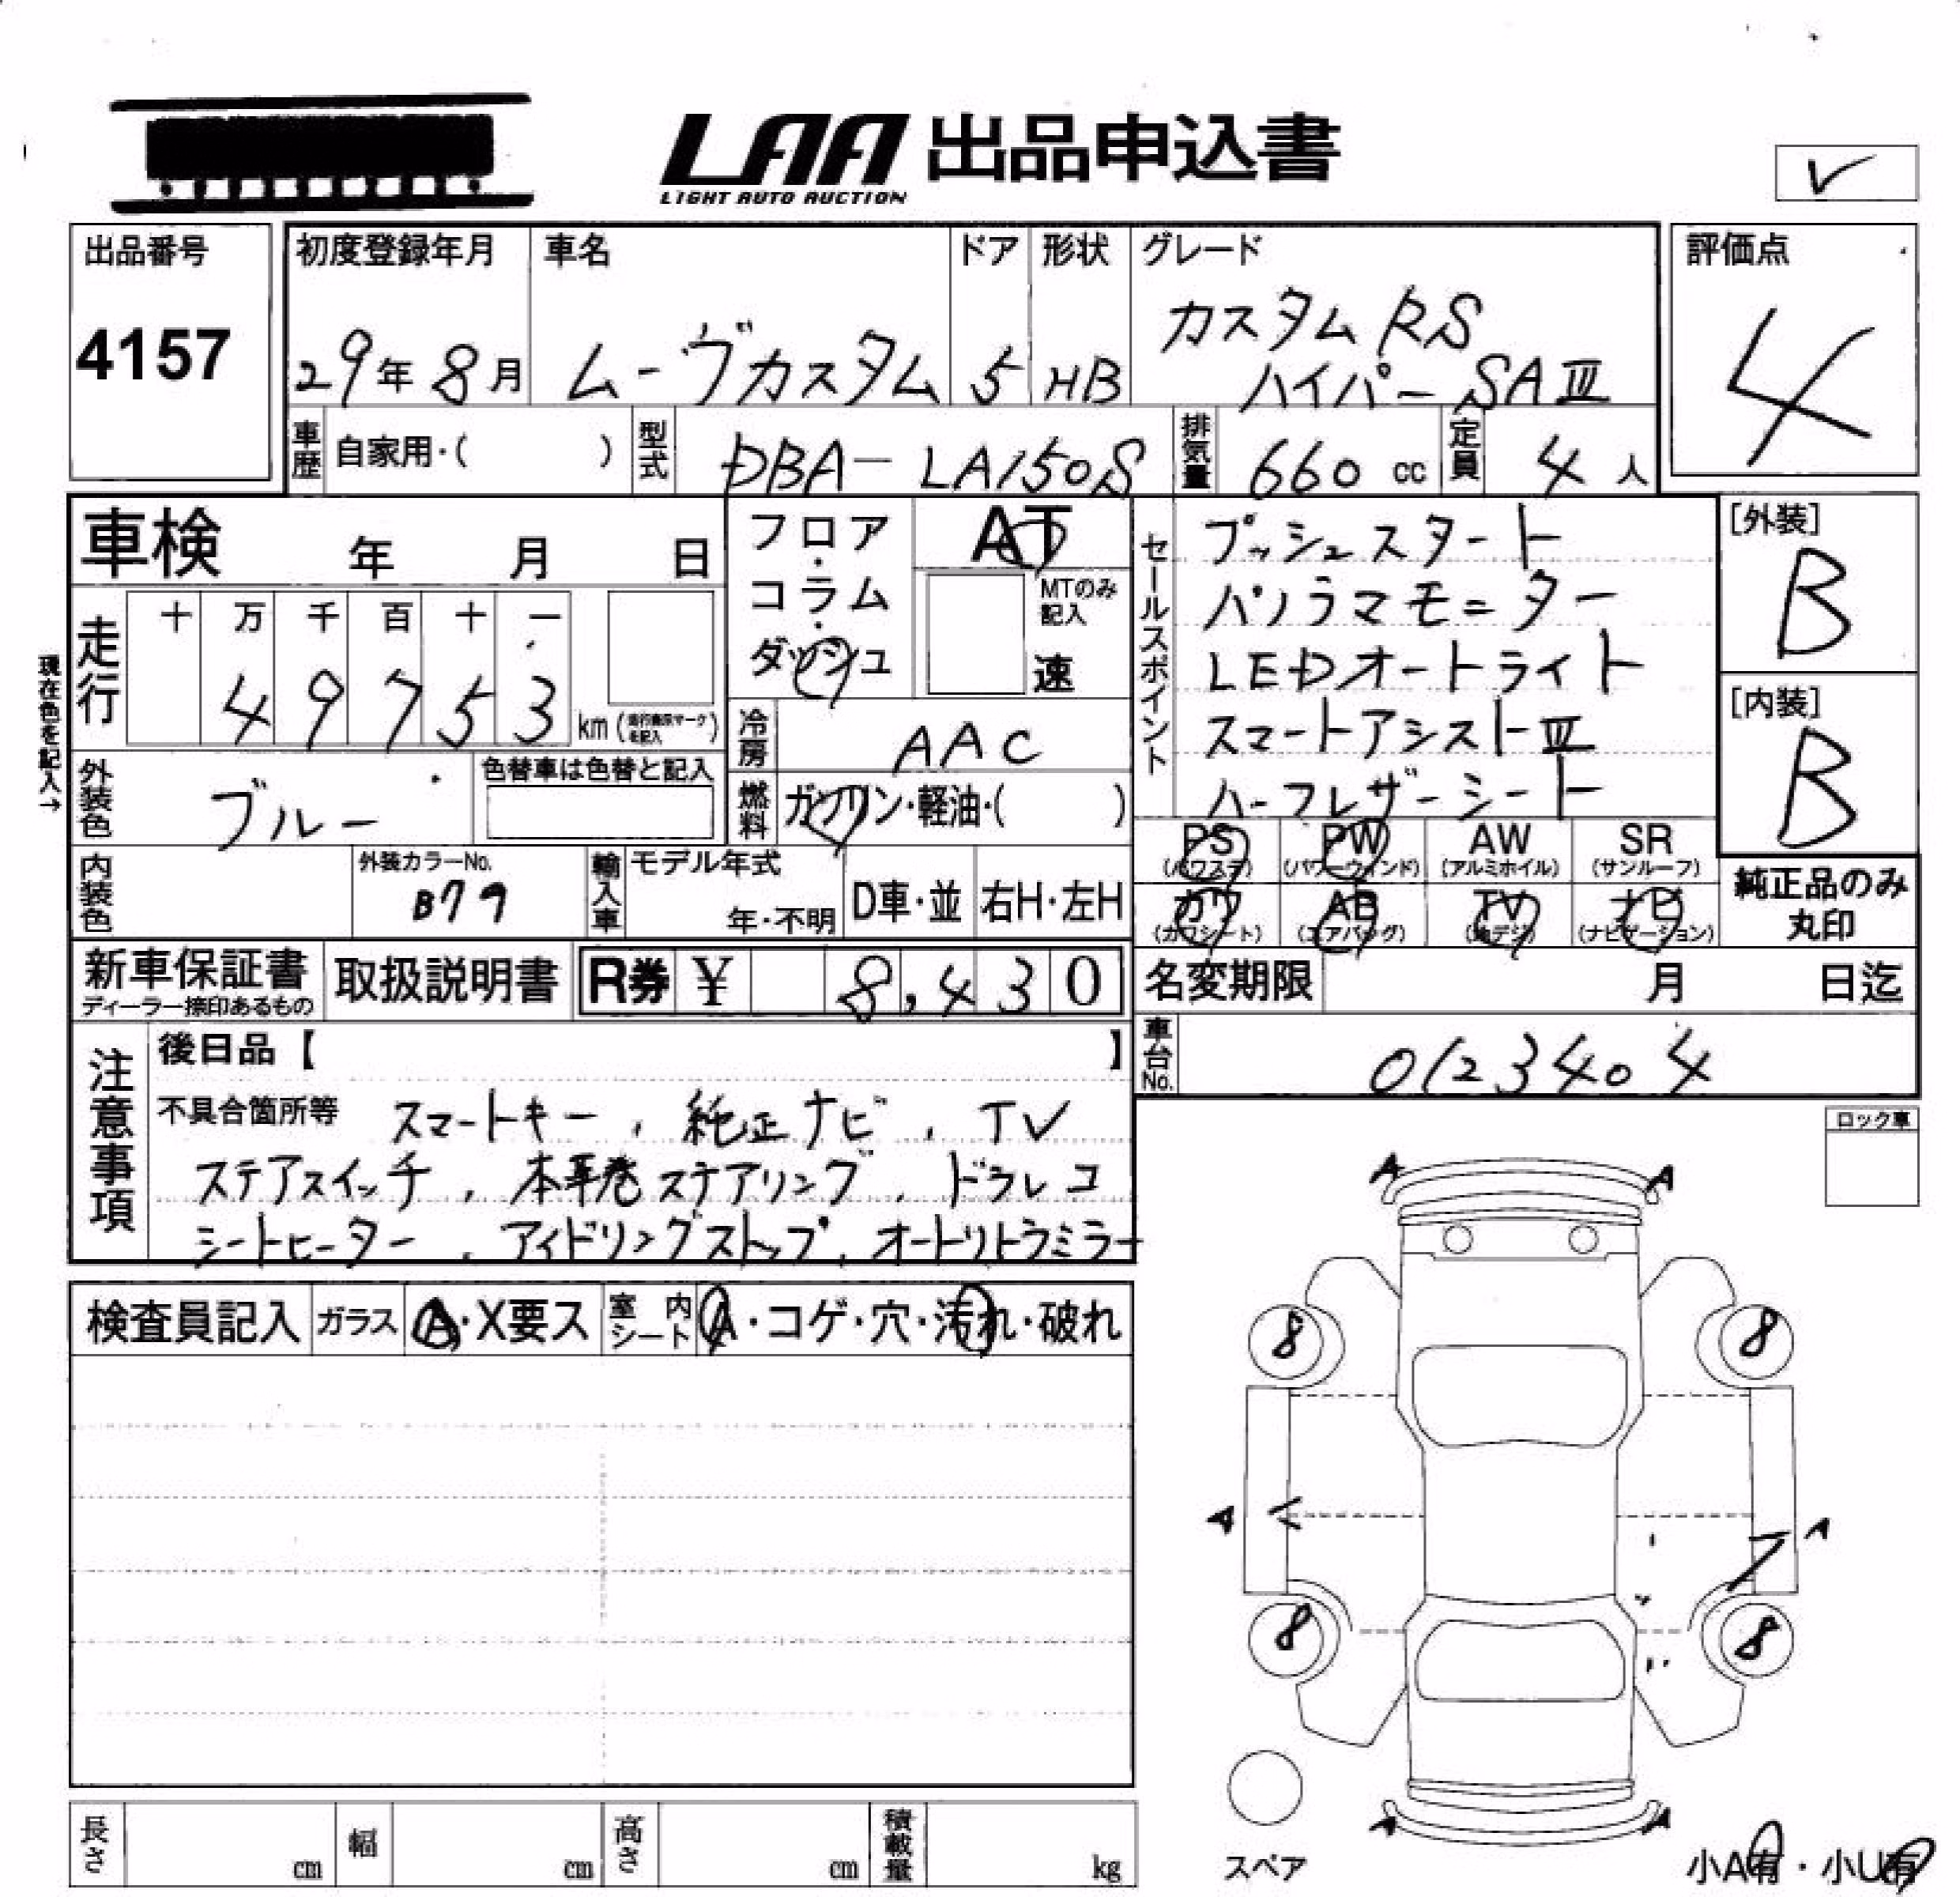 LAA 出品申込書
LIGHT AUTO AUCTION
✓
出品番号
4157
初度登録年月
29年8月
車名
ムーヴカスタム
ドア
5
形状
HB
グレード
カスタムRS
ハイパーSAⅢ
評価点
4
車歴 自家用・( )
型式 DBA-LA150S
排気量 660 cc
定員 4 人
車検 年 月 日
フロア・コラム・ダッシュ
AT
MTのみ記入
速
走行 十 万 千 百 十 一
4 9 7 5 3 km
現在色を記入→
外装色 ブルー
色替車は色替と記入
冷房 AAC
燃料 ガソリン・軽油・( )
セールスポイント
プッシュスタート
パノラマモニター
LEDオートライト
スマートアシストⅢ
ハーフレザーシート
[外装]
B
[内装]
B
PS (パワステ) PW (パワーウィンド) AW (アルミホイル) SR (サンルーフ)
カワ (カワシート) AB (エアバッグ) TV (地デジ) ナビ (ナビゲーション)
純正品のみ
丸印
内装色
外装カラーNo.
B79
輸入車 モデル年式 年・不明 D車・並 右H・左H
新車保証書
ディーラー捺印あるもの
取扱説明書
R券 ¥ 8,430
名変期限 月 日迄
車台No. 0123404
注意事項
後日品【 】
不具合箇所等 スマートキー, 純正ナビ, TV
ステアスイッチ, 本革巻ステアリング, ドラレコ
シートヒーター, アイドリングストップ, オートリトラミラー
検査員記入 ガラス A・X要ス 室内シート A・コゲ・穴・汚れ・破れ
ロック車
A A
8 8
A A
8 8
A A
スペア
小A有・小U有
長さ cm 幅 cm 高さ cm 積載量 kg